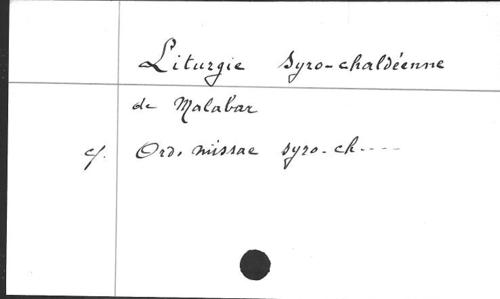 Liturgie Syro-chaldéenne
de Malabar
cf. Ord. missae syro-ch----